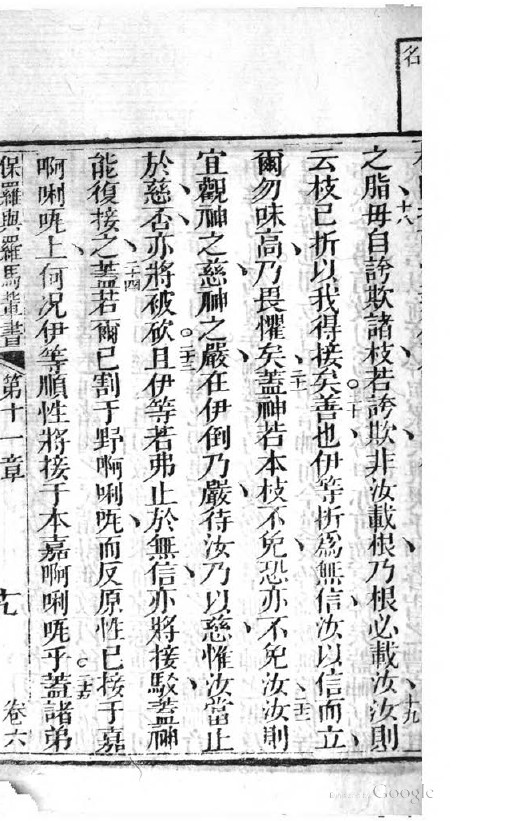 名
之脂毋自誇欺諸枝若誇欺非汝載根乃根必載汝汝則
十八
十九
云枝已折以我得接矣善也伊等折爲無信汝以信而立
二十
爾勿味高乃畏懼矣蓋神若本枝不免恐亦不免汝汝則
二十一
二十二
宜觀神之慈神之嚴在伊倒乃嚴待汝乃以慈惟汝當止
於慈否亦將被砍且伊等若弗止於無信亦將接駁蓋神
二十三
能復接之蓋若爾已割于野啊唎㕵而反原性已接于嘉
二十四
啊唎㕵上何况伊等順性將接于本嘉啊唎㕵乎蓋諸弟
二十五
保羅與羅馬輩書 第十一章 十九 卷六
Digitized by Google